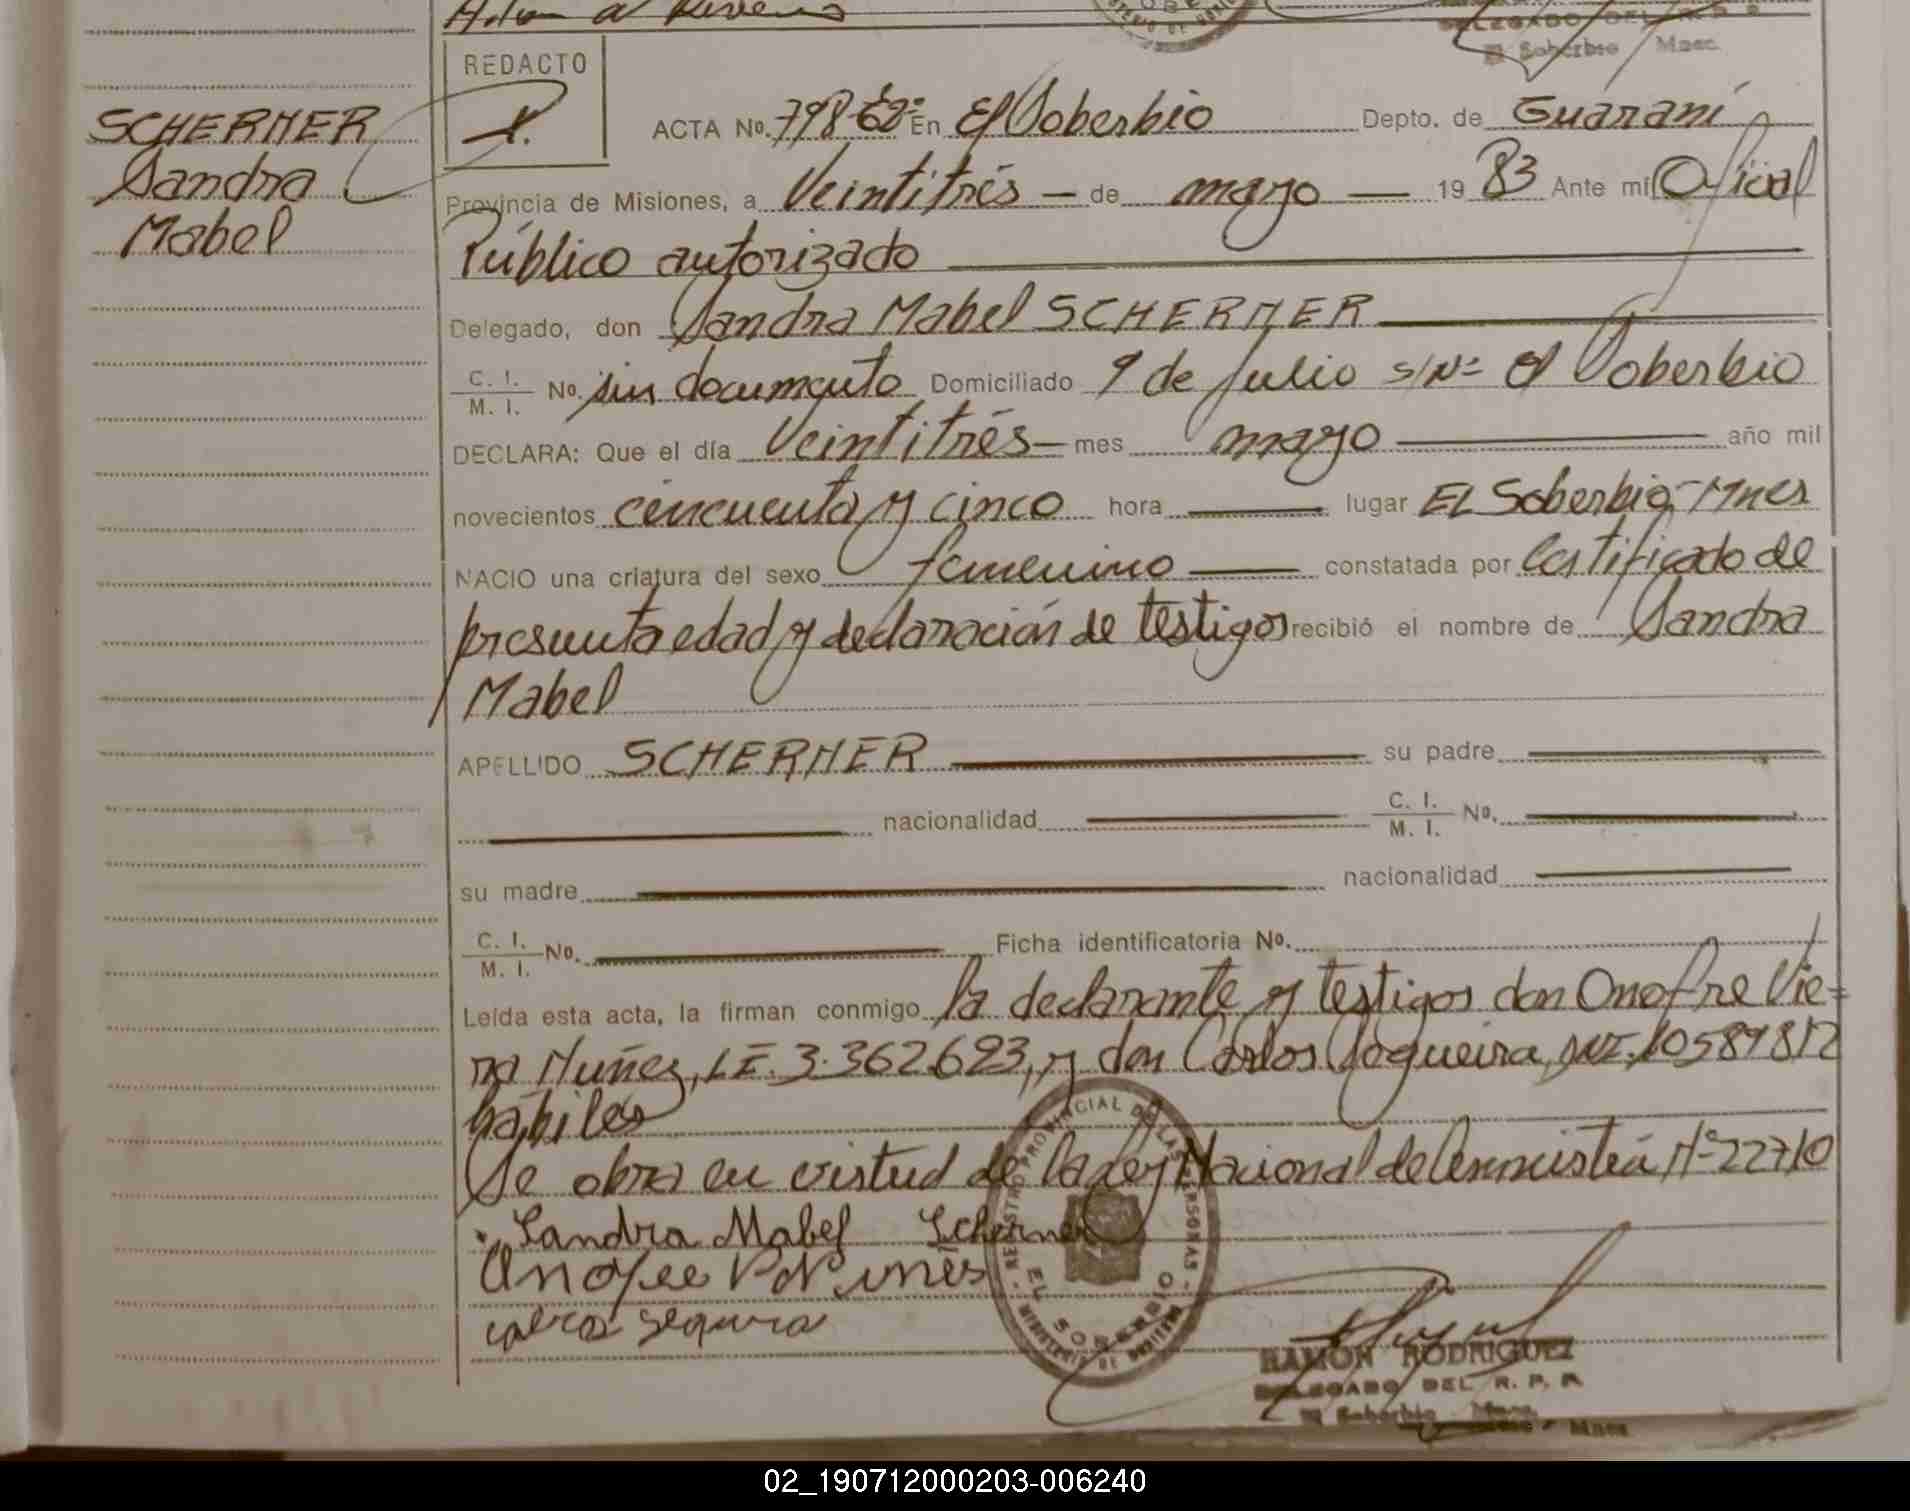 DELEGADO DEL R. P. P.
El Soberbio Mnes.
REDACTO
SCHERMER
Sandra
Mabel
ACTA No. 798 Eº En El Soberbio Depto. de Guaraní
Provincia de Misiones, a Veintitrés — de mayo — 19 83 Ante mí Oficial
Público autorizado
Delegado, don Sandra Mabel SCHERMER
C. I. / M. I. No. sin documento Domiciliado 9 de Julio s/Nº El Soberbio
DECLARA: Que el día Veintitrés — mes mayo — año mil
novecientos cincuenta y cinco hora — lugar El Soberbio - Mnes
NACIO una criatura del sexo femenino — constatada por Certificado de
presunta edad y declaración de testigos recibió el nombre de Sandra
Mabel
APELLIDO SCHERMER — su padre —
— nacionalidad — C. I. / M. I. No. —
su madre — nacionalidad —
C. I. / M. I. No. — Ficha identificatoria No.
Leída esta acta, la firman conmigo la declarante y testigos don Onofre Vie=
ra Nuñez, LE. 3.362.623, y don Carlos Sequeira, DNI. 10589812
hábiles
Se obra en virtud de la Ley Nacional de Amnistía Nº 22710
Sandra Mabel Schermer
REGISTRO PROVINCIAL DE LAS PERSONAS
EL SOBERBIO
RAMON RODRIGUEZ
DELEGADO DEL R. P. P.
El Soberbio Mnes.
02_190712000203-006240